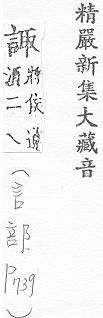 精嚴新集大藏音
諏
將侯
須二
（言部P739）